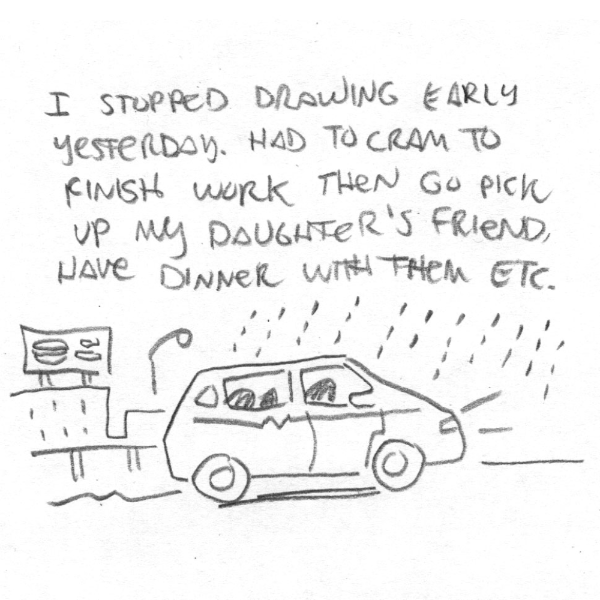 I STOPPED DRAWING EARLY
YESTERDAY. HAD TO CRAM TO
FINISH WORK THEN GO PICK
UP MY DAUGHTER'S FRIEND,
HAVE DINNER WITH THEM ETC.